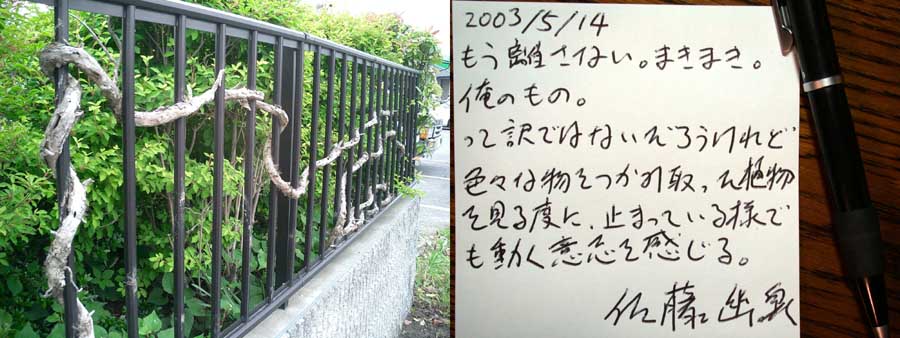 2003/5/14
もう離さない。まきまき。
俺のもの。
って訳ではないだろうけれど
色々な物をつかみ取った植物
を見る度に、止まっている様で
も動く意志を感じる。
佐藤